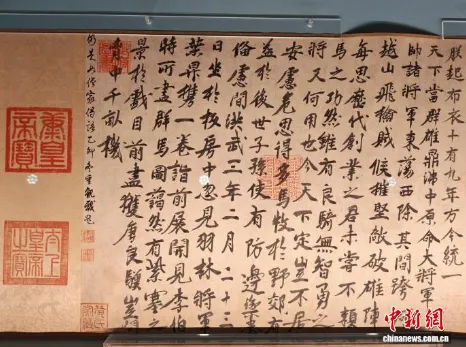 朕起布衣十有九年方今統一
天下當群雄鼎沸中原命大將軍
帥諸將軍東蕩西除其間跨
越山飛檎賊候摧堅敵破雄陣
每思歷代創業之君未嘗不賴
馬之功然雖有良騎無智勇之
將又何用也今天下定豈不居
安慮危思得多馬牧於野郊有
益於後世子孫使有防邊禦
備慮間洪武三年二月二十三
日坐於板房中忽見羽林將軍
葉昇攜一卷詣前展開見李伯
時所畫群馬圖藹然有紫塞之
景於戲目前盡獲唐良驥豈
中千畝機
太上皇帝之寶
中新網
chinanews.com